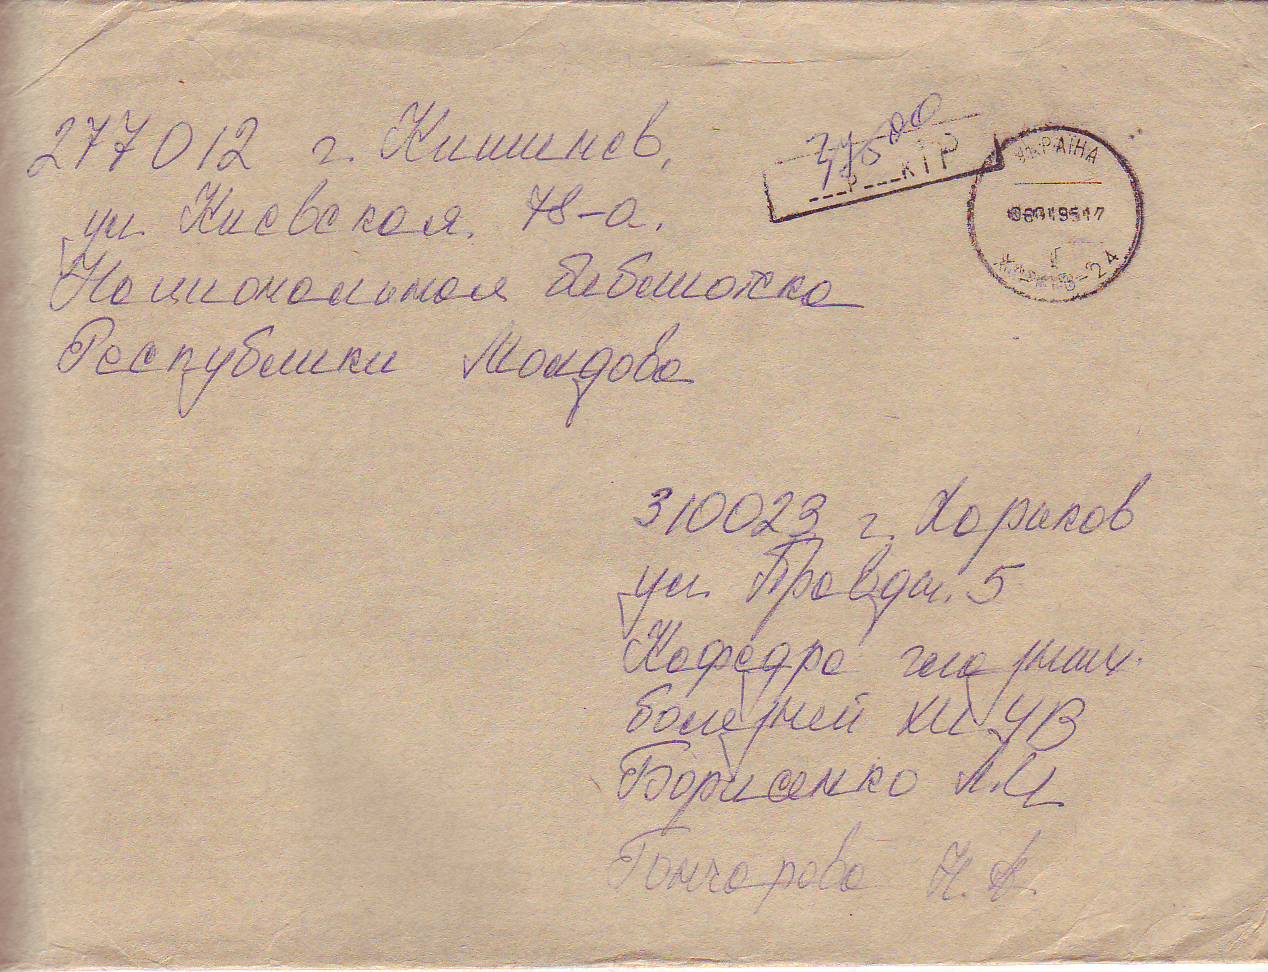 277012 г. Кишинев,
ул. Киевская. 78-а.
Национальная библиотека
Республики Молдова
УКРАЇНА
24
310023 г. Харьков
ул. Правды. 5
Кафедра глазных
болезней ХИУВ
Борисенко Л.И
Гончарова Н.А.